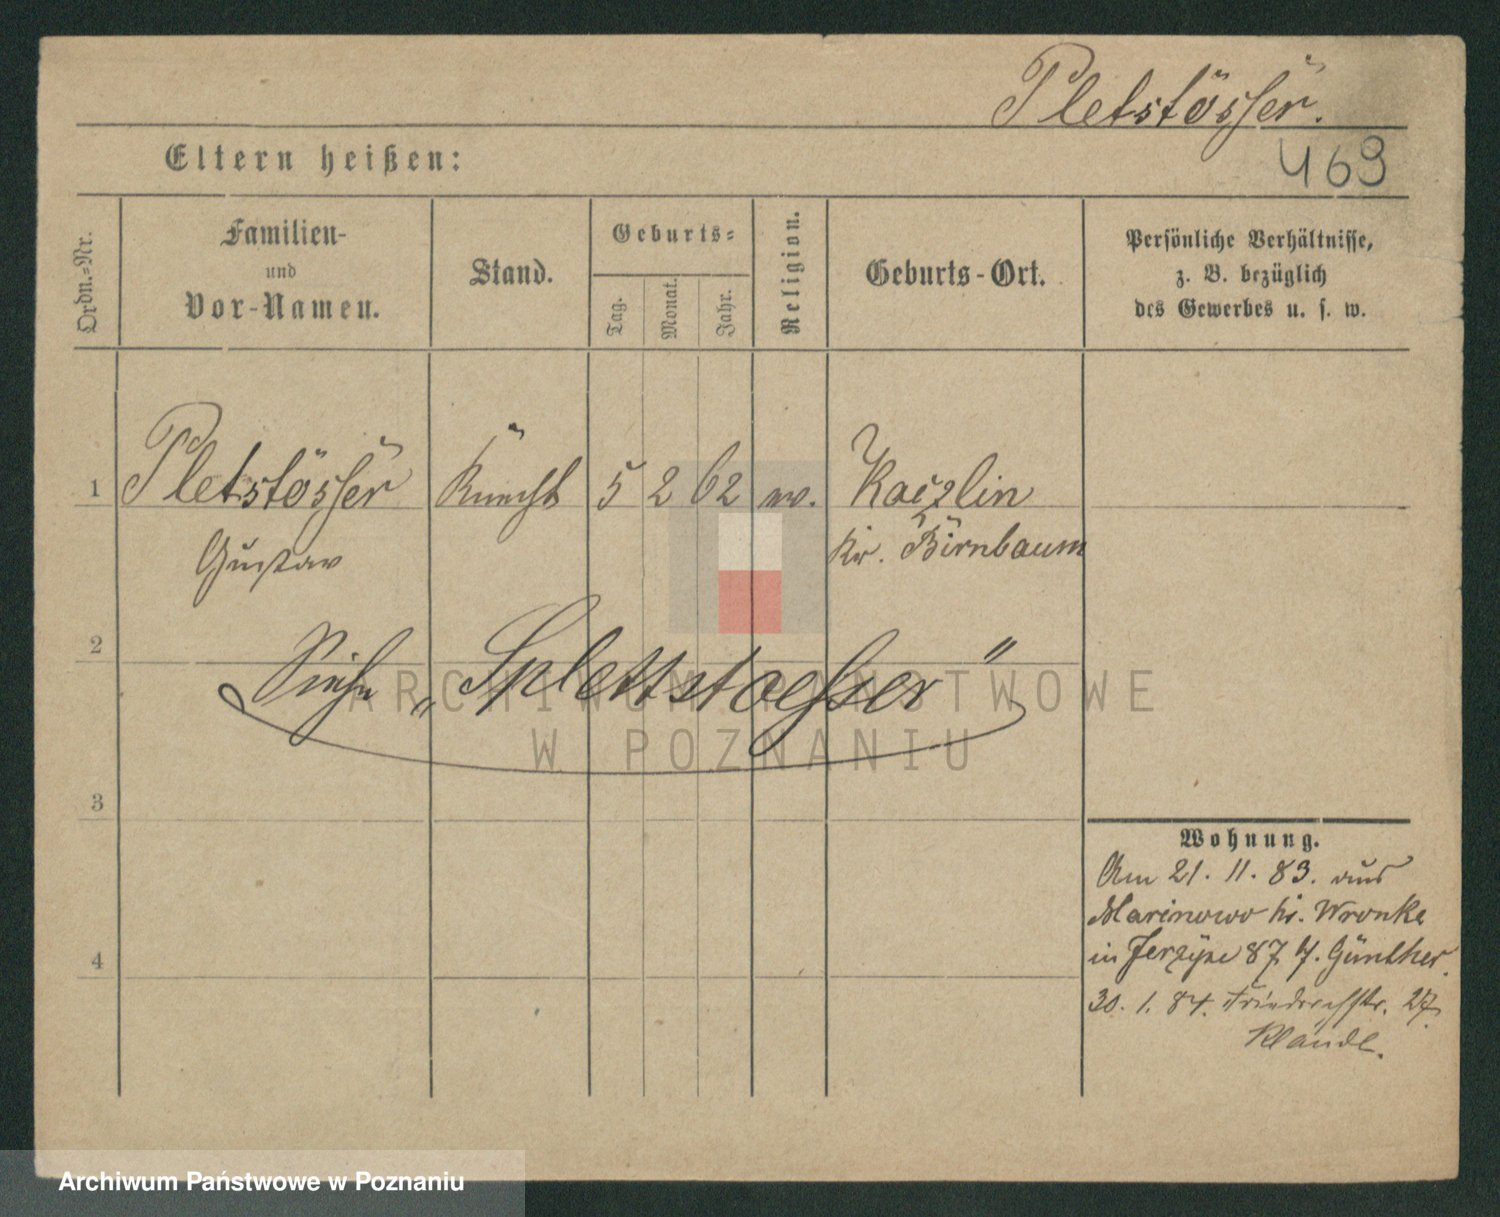 Pletstösser.
469
Eltern heißen:
Ordn.-Nr.
Familien-
und
Vor-Namen.
Stand.
Geburts-
Tag.
Monat.
Jahr.
Religion.
Geburts-Ort.
Persönliche Verhältnisse,
z. B. bezüglich
des Gewerbes u. s. w.
1 Pletstösser Knecht 5 2 62 ev. Kaezlin
Gustav Kr. Birnbaum
2
Siehe „Splettstoesser"
ARCHIWUM PAŃSTWOWE
W POZNANIU
3
4
Wohnung.
Am 21. 11. 83. aus
Marinowo Kr. Wronke
in Jerzyce 87 Günther.
30. 1. 84. Friedrichstr. 27
Archiwum Państwowe w Poznaniu